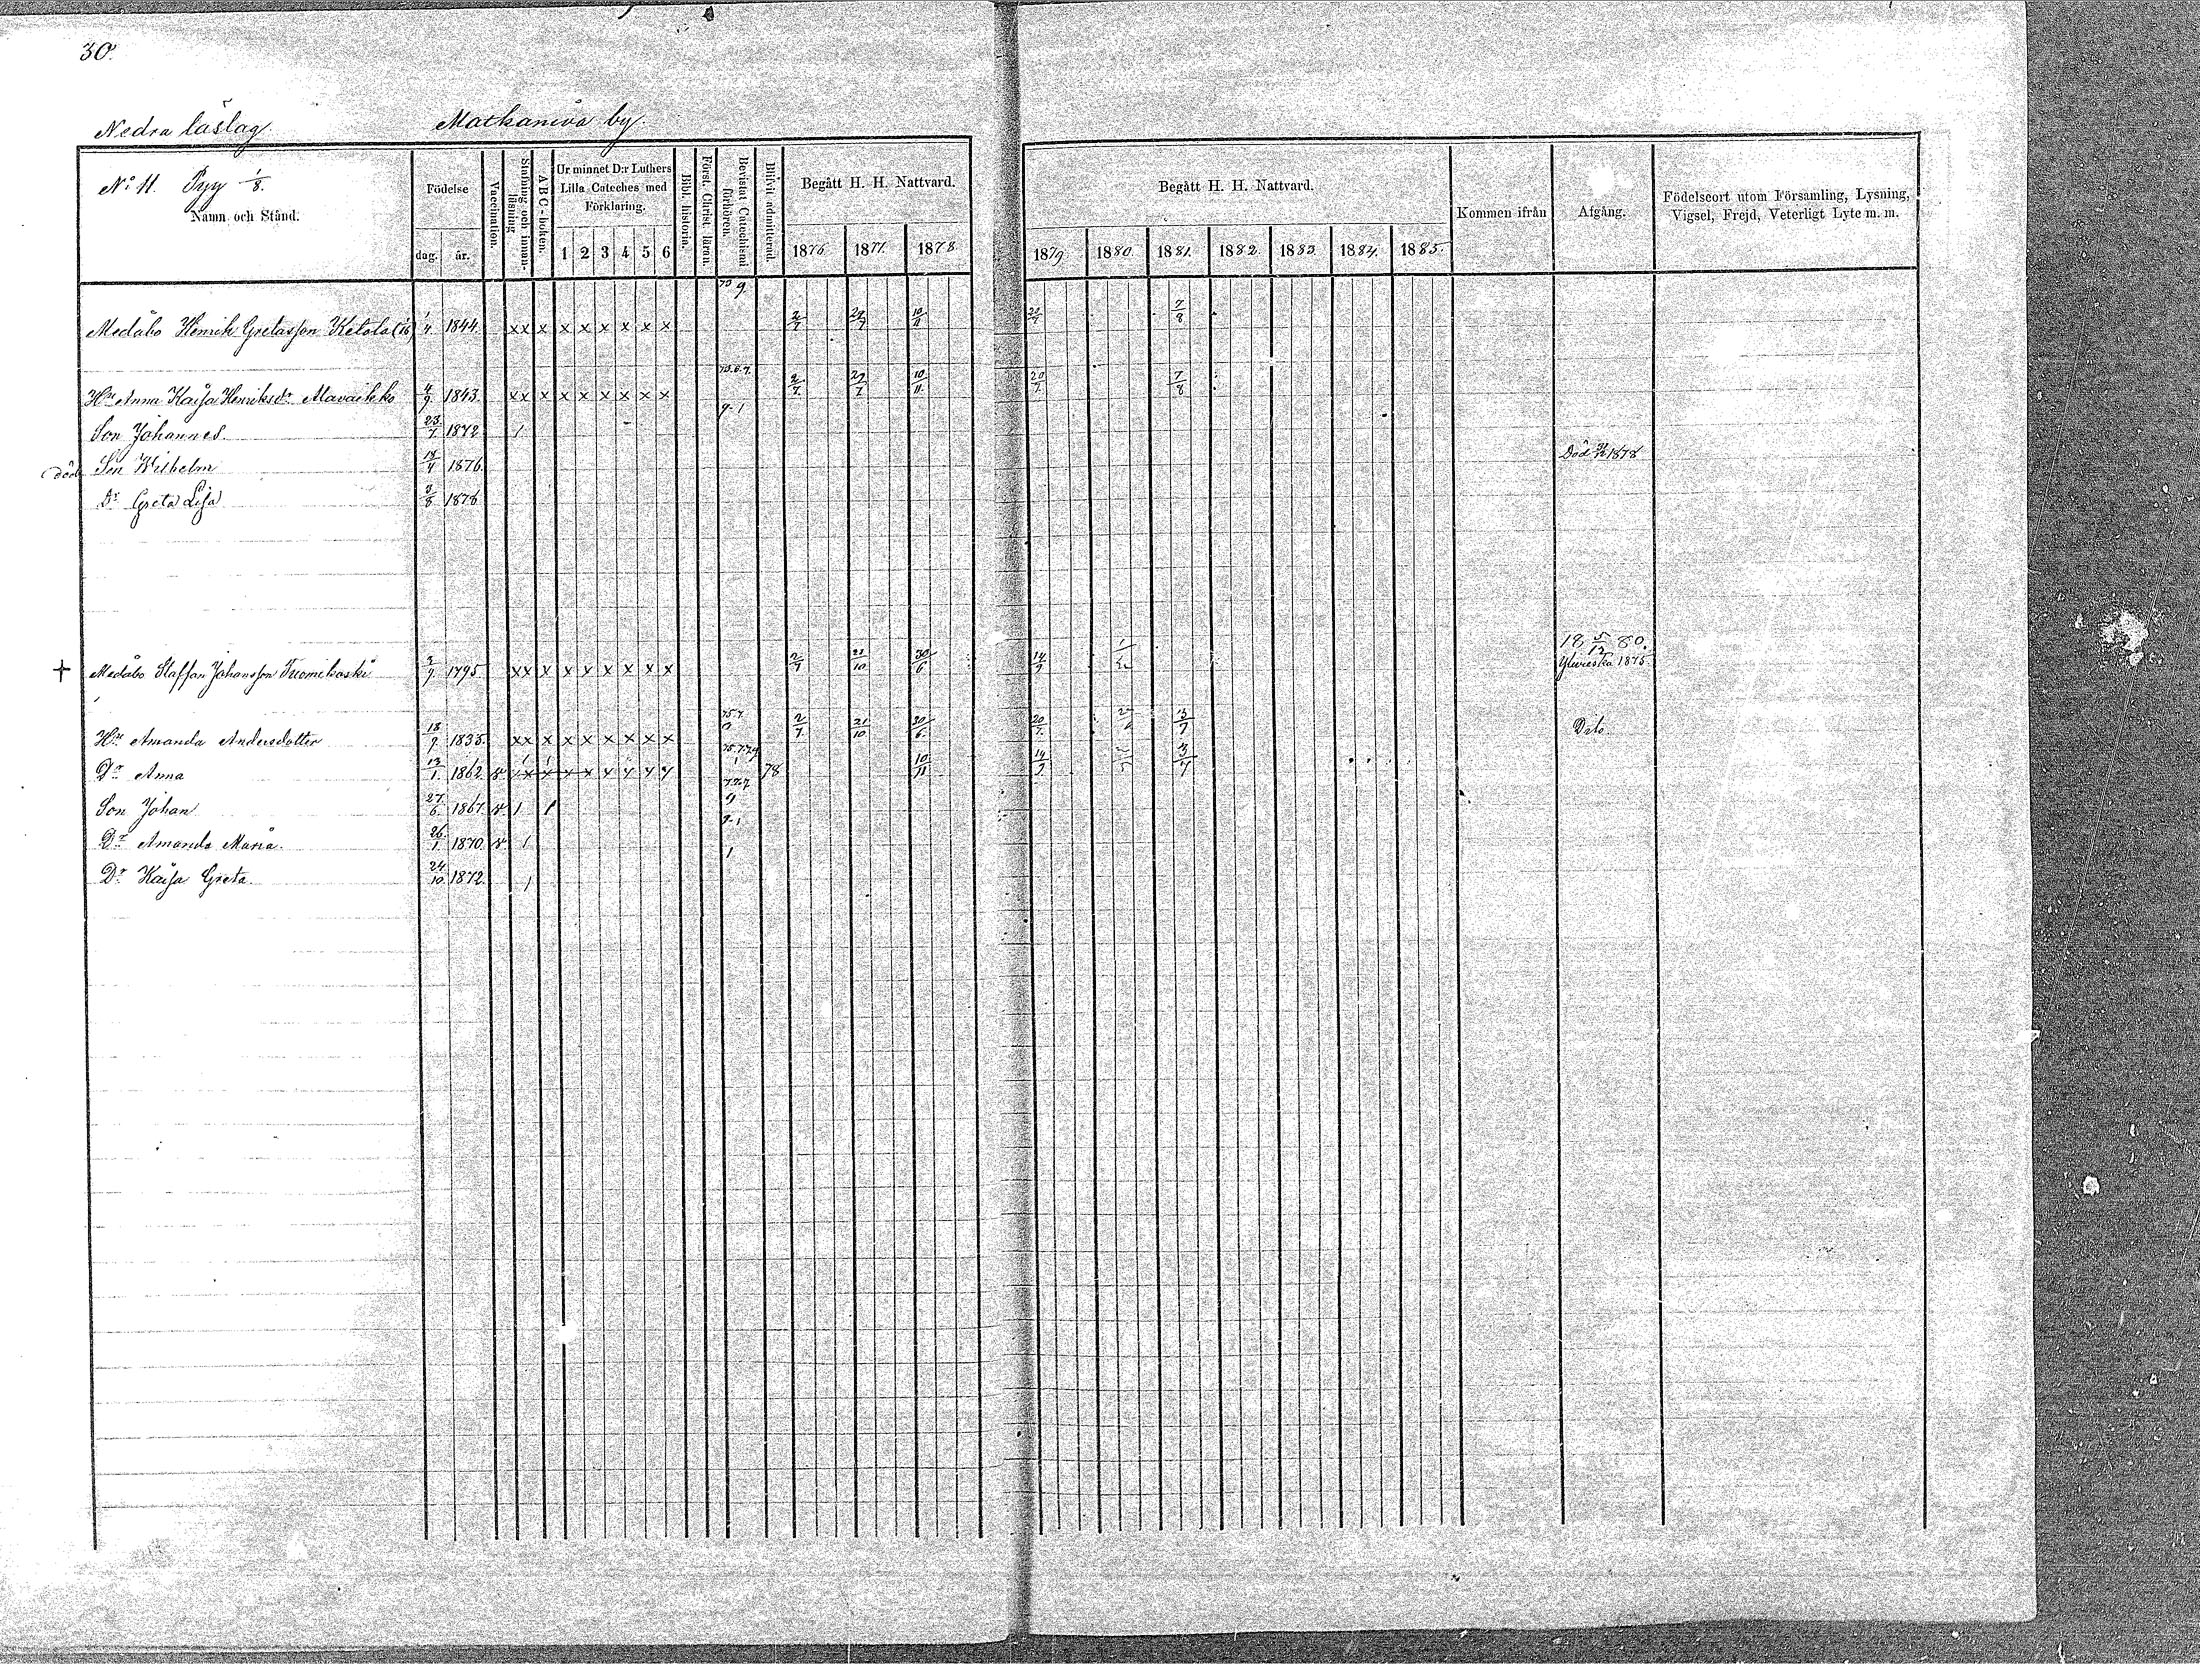 30.
Nedra läslag Matkaniva by.
No 11. Pyy 1/8.
Namn och Stånd.
Födelse
dag. år.
Vaccination.
Stafning och innan-läsning
A B C-boken.
Ur minnet D:r Luthers Lilla Cateches med Förklaring.
1 2 3 4 5 6
Bibl. historia.
Först. Christ. läran.
Bevistat Catechismi förhören.
Blifvit admitterad.
Begått H. H. Nattvard.
1876 1877. 1878
Begått H. H. Nattvard.
1879 1880. 1881. 1882. 1883. 1884. 1885.
Kommen ifrån
Afgång.
Födelseort utom Församling, Lysning, Vigsel, Frejd, Veterligt Lyte m. m.
Medåbo Henrik Gretasson Ketola 1/4 1844 x x x x x x x x x 2/7 29/7 10/11 20/7 7/8
Hru Anna Kaisa Henriksdr 4/9 1843 x x x x x x x x x 2/7 29/7 10/11 20/7 7/8
Son Johannes. 23/7 1872 /
död Son Wilhelm 18/4 1876 Död 1878
Dr Greta Lisa 3/8 1878
+ Medåbo Staffan Johansson Tuomikoski 2/9 1795 x x x x x x x x x 2/7 21/10 30/6 14/9 18 5/12 80. Ylivieska 1875
Hru Amanda Andersdotter 18/9 1835. x x x x x x x x x 2/7 21/10 30/6 20/7 3/7 Dito
Dr Anna 13/1 1862 v 78 10/11 14/9 3/7
Son Johan 27/6 1867 v / /
Dr Amanda Maria. 26/1 1870 v /
Dr Kaisa Greta. 24/10 1872. /